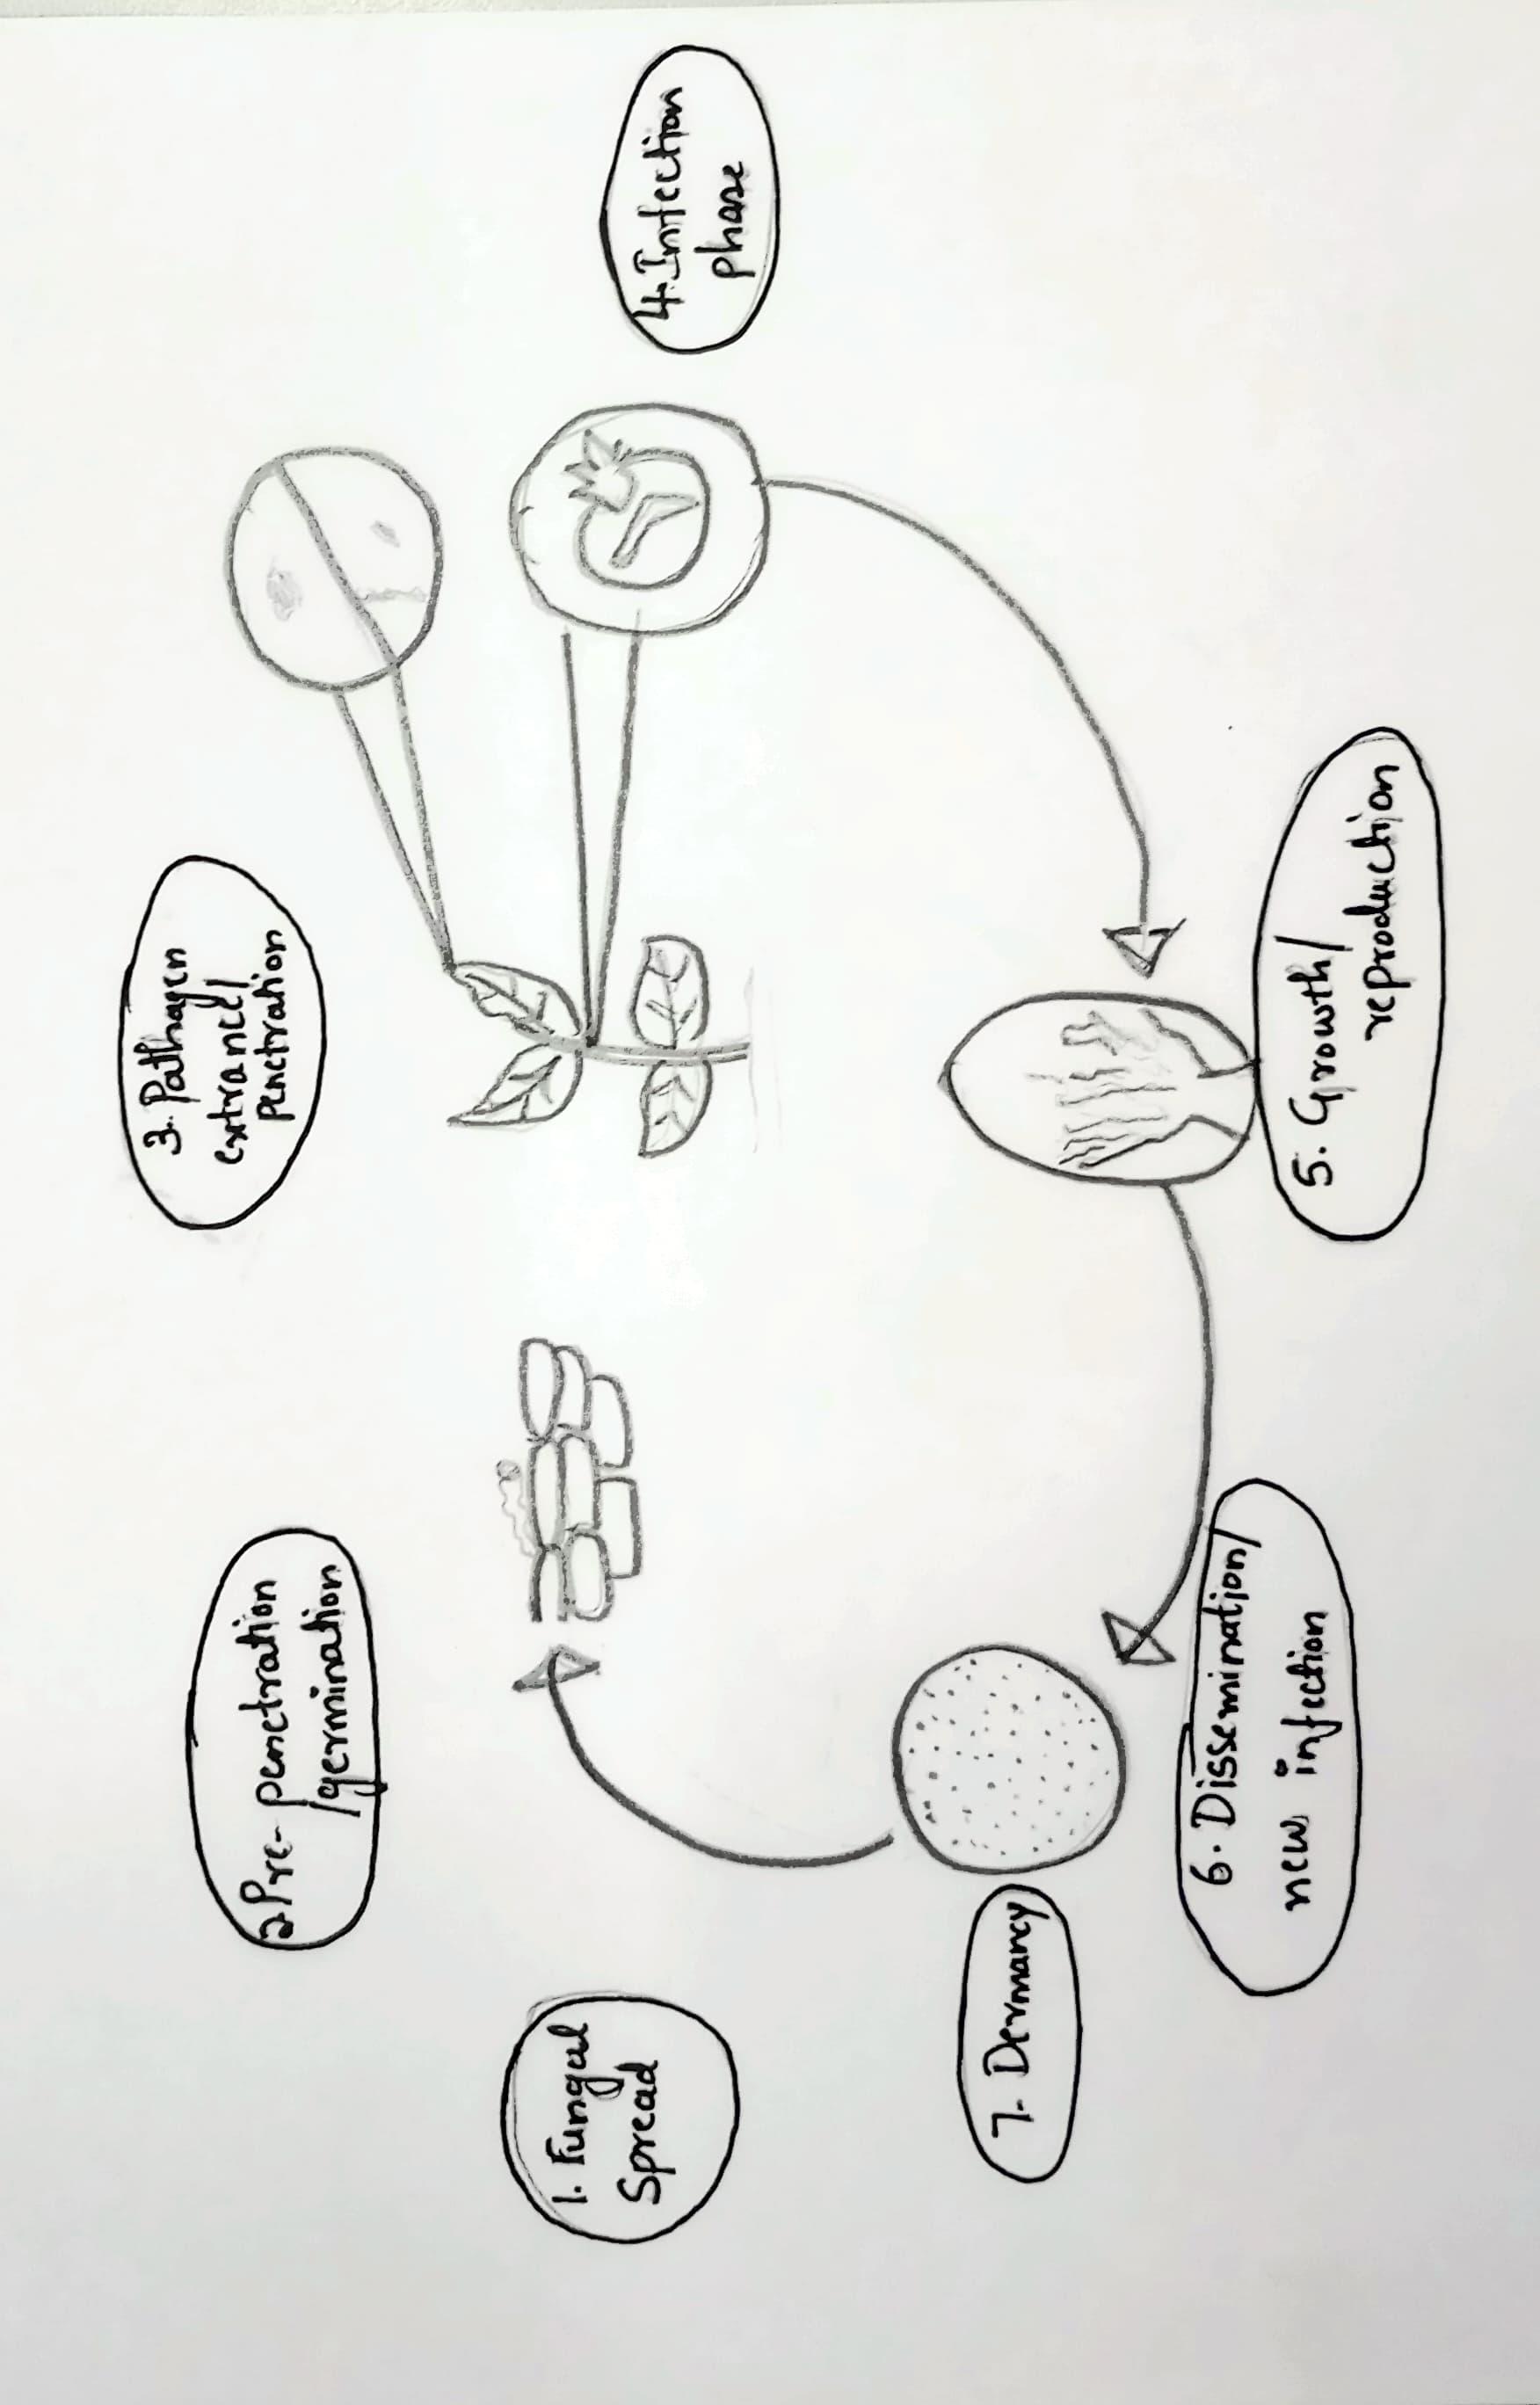 1. Fungal
Spread
2 Pre-penetration
/germination
3. Pathagen
extrance/
penetration
4. Infection
phase
5. Growth/
reproduction
6. Dissemination/
new infection
7. Dermancy